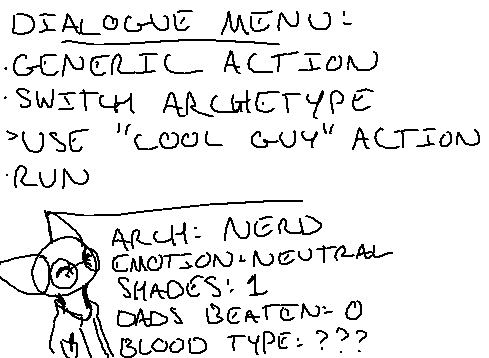 DIALOGUE MENU:
·GENERIC ACTION
·SWITCH ARCHETYPE
>USE "COOL GUY" ACTION
·RUN
ARCH: NERD
EMOTION: NEUTRAL
SHADES: 1
DADS BEATEN: 0
BLOOD TYPE: ???